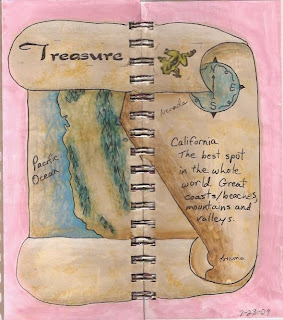 Treasure
N
E
S
Nevada
Pacific
Ocean
California
The best spot
in the whole
world. Great
coasts/beaches,
mountains and
valleys.
Arizona
2-23-09